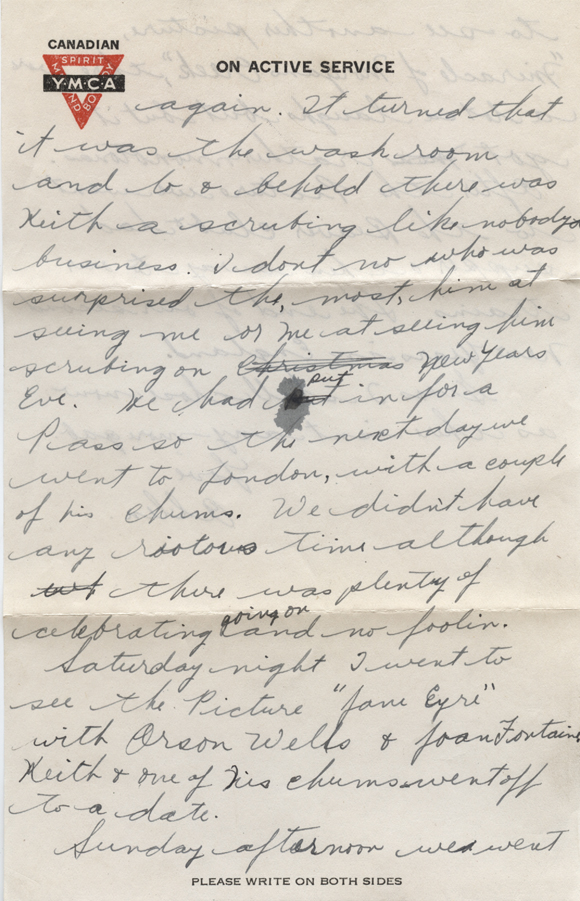 CANADIAN
SPIRIT
Y·M·C·A
MIND AND BODY
ON ACTIVE SERVICE
again. It turned that
it was the wash room
and lo & behold there was
Keith a scrubing like nobodys
business. I dont no who was
surprised the, most, him at
seeing me or me at seeing him
scrubing on Christmas New Years
Eve. He had put in for a
Pass so the next day we
went to London, with a couple
of his chums. We didn't have
any riotous time although
there was plenty of
celebrating going on and no foolin.
Saturday night I went to
see the Picture "Jane Eyre"
with Orson Wells & Joan Fontaine
Keith & one of his chums went off
to a date.
Sunday afternoon we went
PLEASE WRITE ON BOTH SIDES